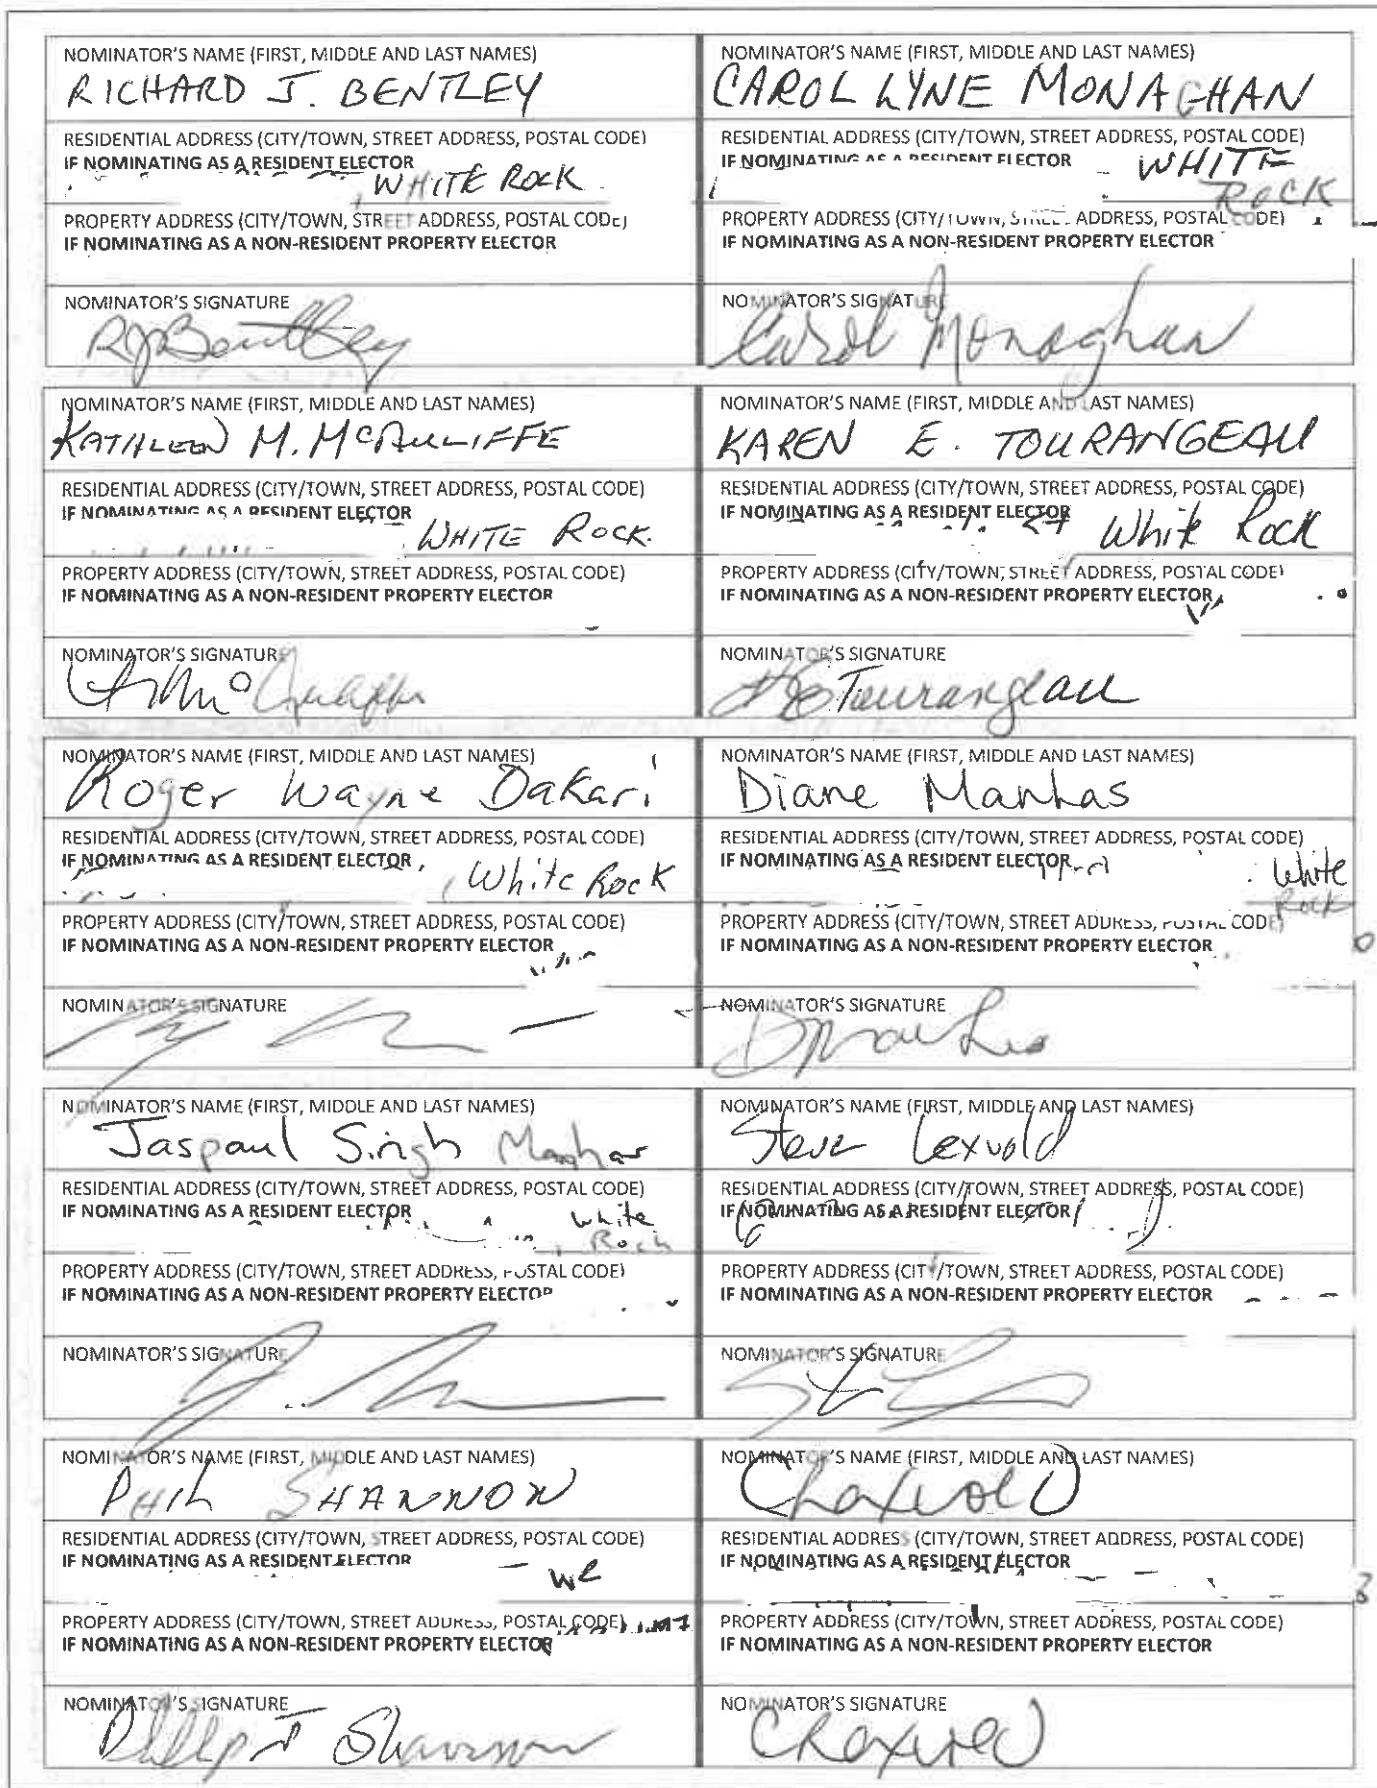 NOMINATOR'S NAME (FIRST, MIDDLE AND LAST NAMES)
RICHARD J. BENTLEY
RESIDENTIAL ADDRESS (CITY/TOWN, STREET ADDRESS, POSTAL CODE)
IF NOMINATING AS A RESIDENT ELECTOR
WHITE ROCK
PROPERTY ADDRESS (CITY/TOWN, STREET ADDRESS, POSTAL CODE)
IF NOMINATING AS A NON-RESIDENT PROPERTY ELECTOR
NOMINATOR'S SIGNATURE
RJBentley
NOMINATOR'S NAME (FIRST, MIDDLE AND LAST NAMES)
CAROL LYNE MONAGHAN
RESIDENTIAL ADDRESS (CITY/TOWN, STREET ADDRESS, POSTAL CODE)
IF NOMINATING AS A RESIDENT ELECTOR
WHITE
ROCK
PROPERTY ADDRESS (CITY/TOWN, STREET ADDRESS, POSTAL CODE)
IF NOMINATING AS A NON-RESIDENT PROPERTY ELECTOR
NOMINATOR'S SIGNATURE
Carol Monaghan
NOMINATOR'S NAME (FIRST, MIDDLE AND LAST NAMES)
KATHLEEN M. MCAULIFFE
RESIDENTIAL ADDRESS (CITY/TOWN, STREET ADDRESS, POSTAL CODE)
IF NOMINATING AS A RESIDENT ELECTOR
WHITE ROCK.
PROPERTY ADDRESS (CITY/TOWN, STREET ADDRESS, POSTAL CODE)
IF NOMINATING AS A NON-RESIDENT PROPERTY ELECTOR
NOMINATOR'S SIGNATURE
NOMINATOR'S NAME (FIRST, MIDDLE AND LAST NAMES)
KAREN E. TOURANGEAU
RESIDENTIAL ADDRESS (CITY/TOWN, STREET ADDRESS, POSTAL CODE)
IF NOMINATING AS A RESIDENT ELECTOR
White Rock
PROPERTY ADDRESS (CITY/TOWN, STREET ADDRESS, POSTAL CODE)
IF NOMINATING AS A NON-RESIDENT PROPERTY ELECTOR
NOMINATOR'S SIGNATURE
KETourangeau
NOMINATOR'S NAME (FIRST, MIDDLE AND LAST NAMES)
Roger Wayne Dakari
RESIDENTIAL ADDRESS (CITY/TOWN, STREET ADDRESS, POSTAL CODE)
IF NOMINATING AS A RESIDENT ELECTOR
, White Rock
PROPERTY ADDRESS (CITY/TOWN, STREET ADDRESS, POSTAL CODE)
IF NOMINATING AS A NON-RESIDENT PROPERTY ELECTOR
NOMINATOR'S SIGNATURE
NOMINATOR'S NAME (FIRST, MIDDLE AND LAST NAMES)
Diane Manhas
RESIDENTIAL ADDRESS (CITY/TOWN, STREET ADDRESS, POSTAL CODE)
IF NOMINATING AS A RESIDENT ELECTOR
White
Rock
PROPERTY ADDRESS (CITY/TOWN, STREET ADDRESS, POSTAL CODE)
IF NOMINATING AS A NON-RESIDENT PROPERTY ELECTOR
NOMINATOR'S SIGNATURE
DManhas
NOMINATOR'S NAME (FIRST, MIDDLE AND LAST NAMES)
Jaspaul Singh Manhas
RESIDENTIAL ADDRESS (CITY/TOWN, STREET ADDRESS, POSTAL CODE)
IF NOMINATING AS A RESIDENT ELECTOR
White
Rock
PROPERTY ADDRESS (CITY/TOWN, STREET ADDRESS, POSTAL CODE)
IF NOMINATING AS A NON-RESIDENT PROPERTY ELECTOR
NOMINATOR'S SIGNATURE
NOMINATOR'S NAME (FIRST, MIDDLE AND LAST NAMES)
Steve Lexvold
RESIDENTIAL ADDRESS (CITY/TOWN, STREET ADDRESS, POSTAL CODE)
IF NOMINATING AS A RESIDENT ELECTOR
PROPERTY ADDRESS (CITY/TOWN, STREET ADDRESS, POSTAL CODE)
IF NOMINATING AS A NON-RESIDENT PROPERTY ELECTOR
NOMINATOR'S SIGNATURE
NOMINATOR'S NAME (FIRST, MIDDLE AND LAST NAMES)
PHIL SHANNON
RESIDENTIAL ADDRESS (CITY/TOWN, STREET ADDRESS, POSTAL CODE)
IF NOMINATING AS A RESIDENT ELECTOR
PROPERTY ADDRESS (CITY/TOWN, STREET ADDRESS, POSTAL CODE)
IF NOMINATING AS A NON-RESIDENT PROPERTY ELECTOR
NOMINATOR'S SIGNATURE
Phillip J Shannon
NOMINATOR'S NAME (FIRST, MIDDLE AND LAST NAMES)
RESIDENTIAL ADDRESS (CITY/TOWN, STREET ADDRESS, POSTAL CODE)
IF NOMINATING AS A RESIDENT ELECTOR
PROPERTY ADDRESS (CITY/TOWN, STREET ADDRESS, POSTAL CODE)
IF NOMINATING AS A NON-RESIDENT PROPERTY ELECTOR
NOMINATOR'S SIGNATURE